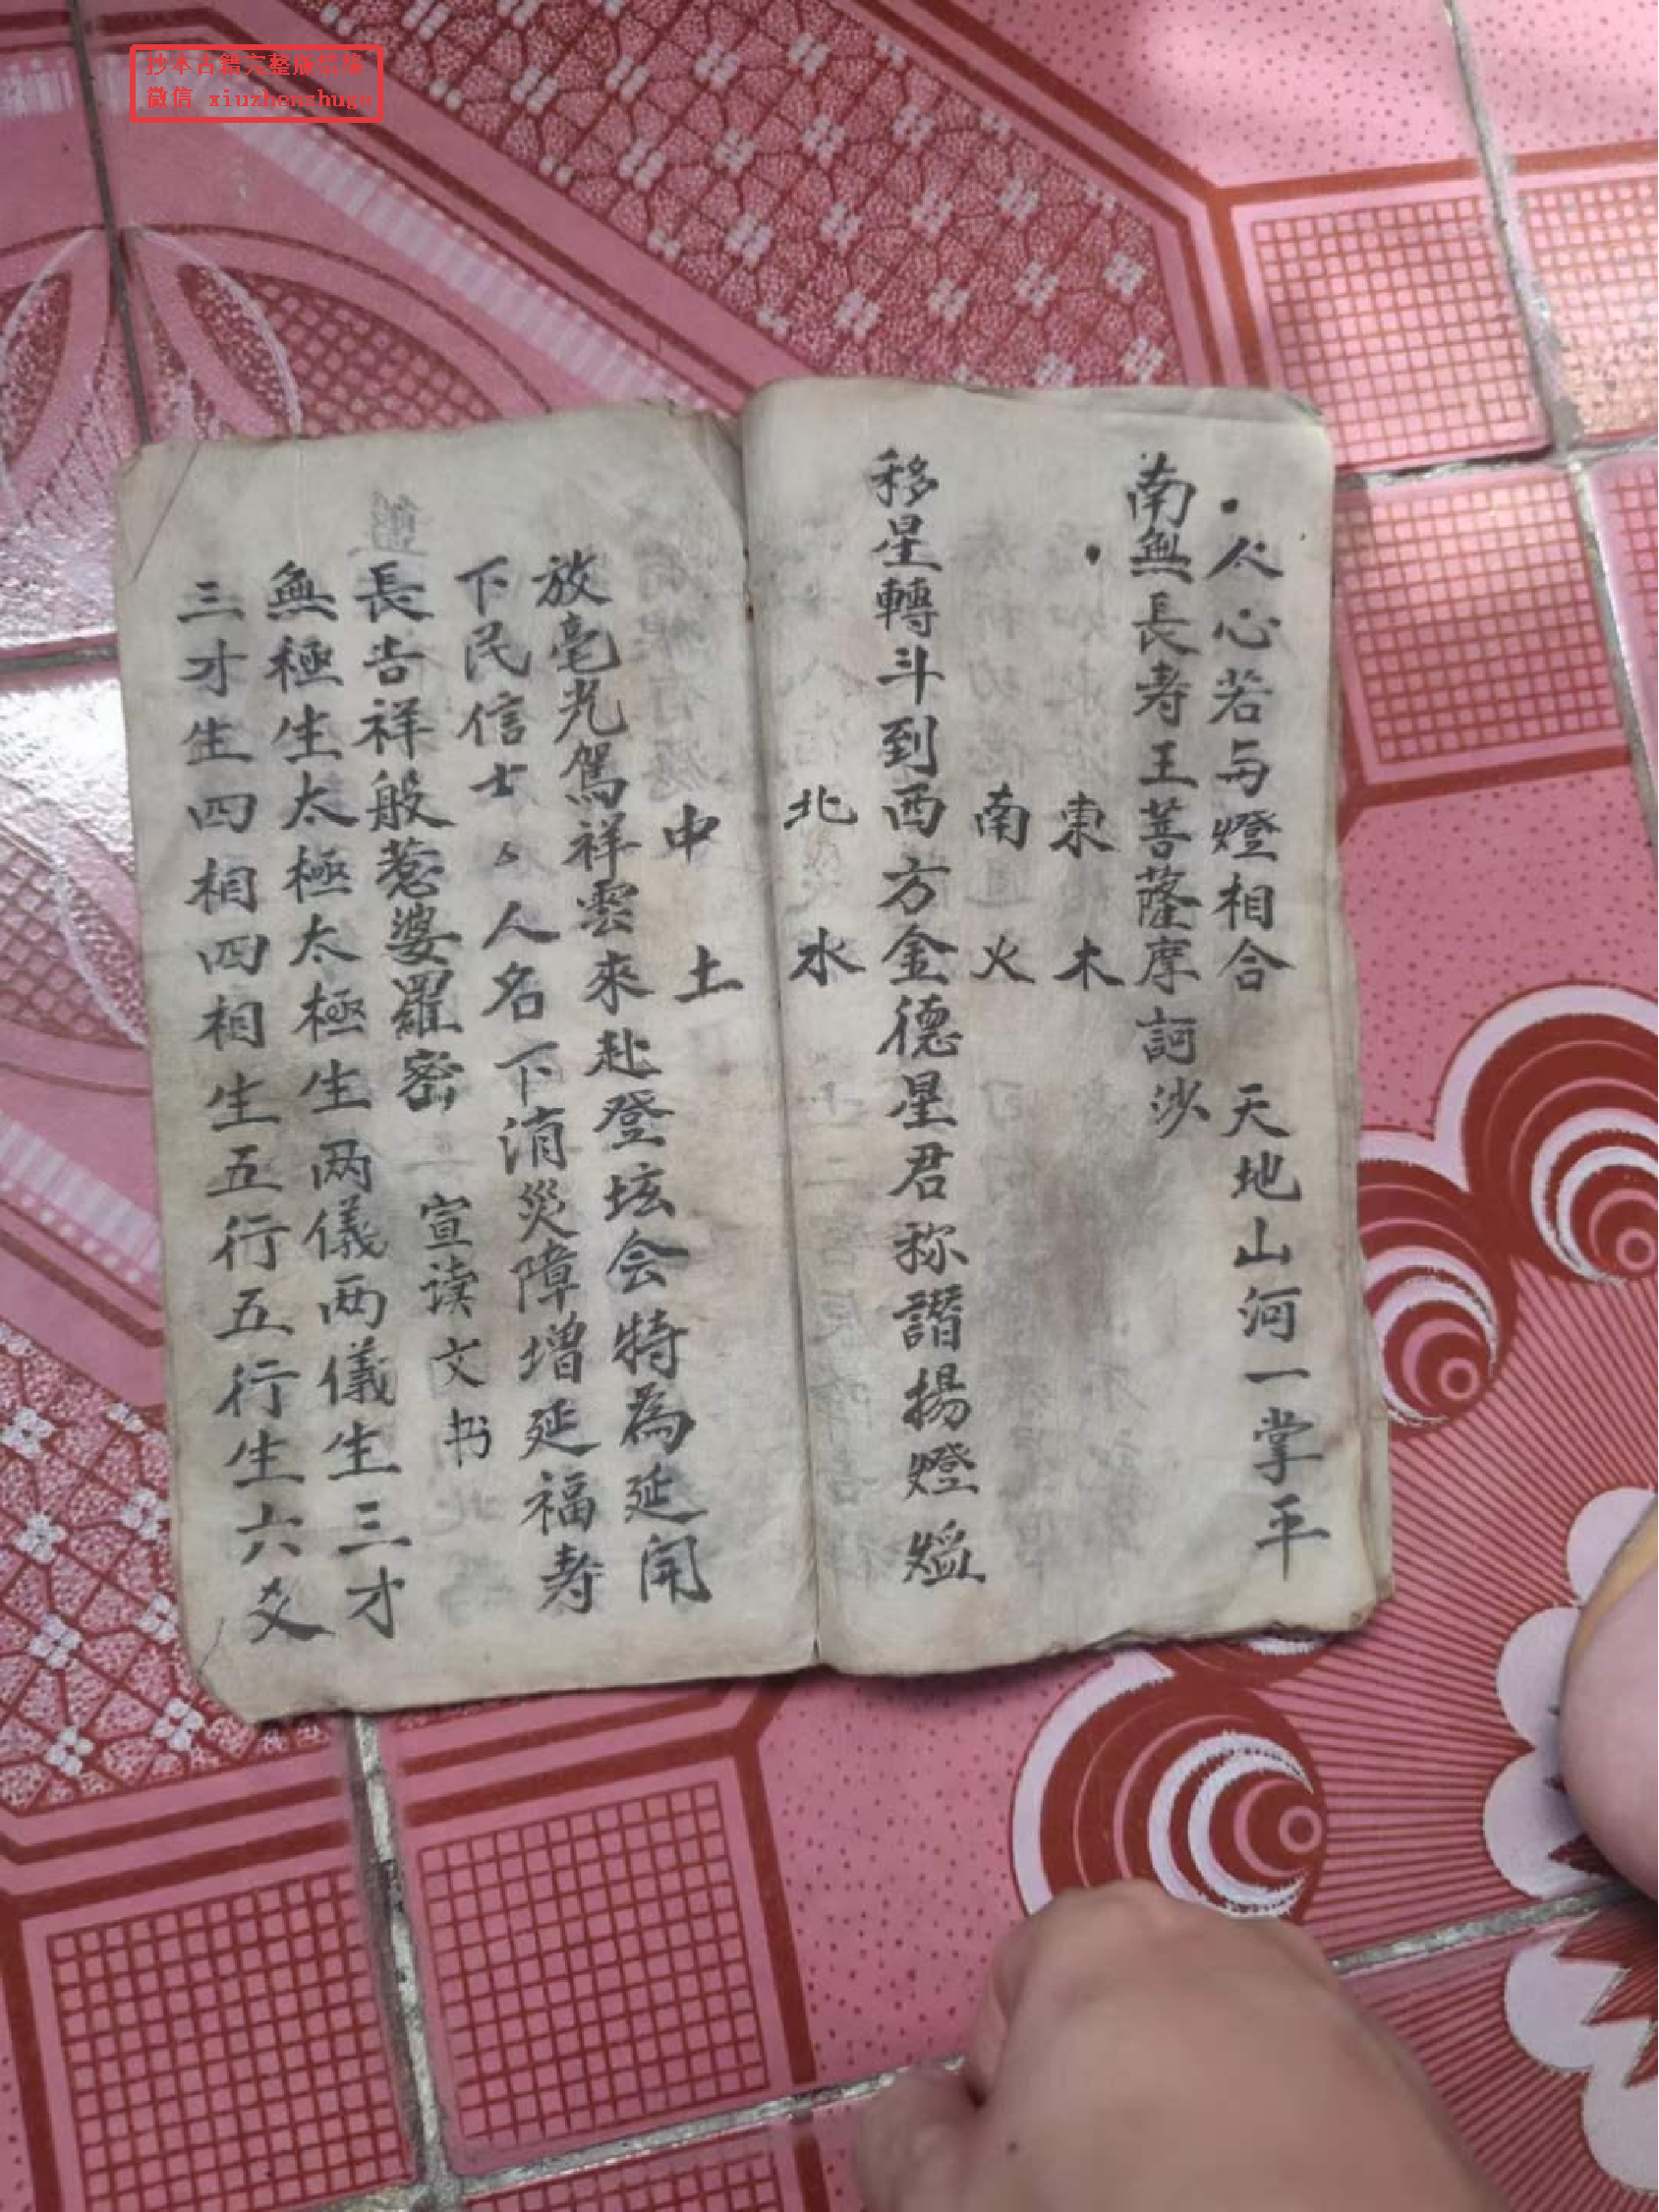 抄本古籍完整版结缘
微信 xiuzhenshuge
人心若与燈相合 天地山河一掌平
南無長寿王菩薩摩訶沙
東 木
南 火
移星轉斗到西方金德星君称讃揚燈
北 水
中 土
放毫光駕祥雲來赴登坛会特為延開
下民信士厶厶人名下消災障增延福寿
長吉祥般惹婆羅密 宣读文书
無極生太極太極生两儀两儀生三才
三才生四相四相生五行五行生六爻